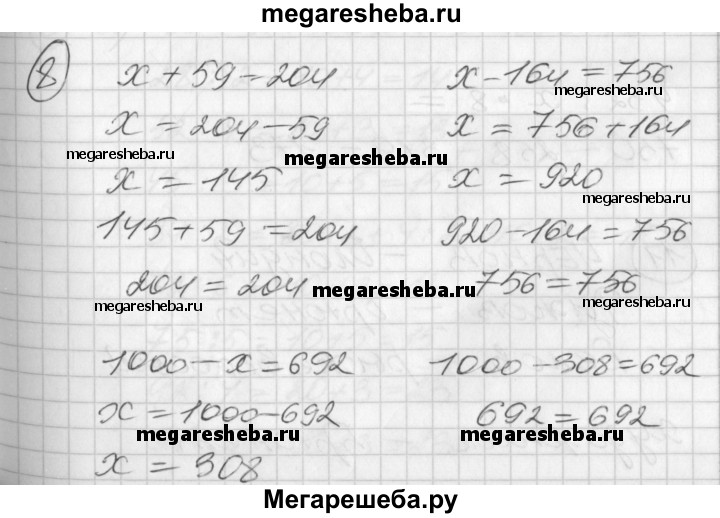 megaresheba.ru
8
x + 59 = 204
x = 204 - 59
x = 145
145 + 59 = 204
204 = 204
x - 164 = 756
x = 756 + 164
x = 920
920 - 164 = 756
756 = 756
1000 - x = 692
x = 1000 - 692
x = 308
1000 - 308 = 692
692 = 692
megaresheba.ru
megaresheba.ru
megaresheba.ru
megaresheba.ru
megaresheba.ru
megaresheba.ru
megaresheba.ru
megaresheba.ru
megaresheba.ru
Мегарешеба.ру